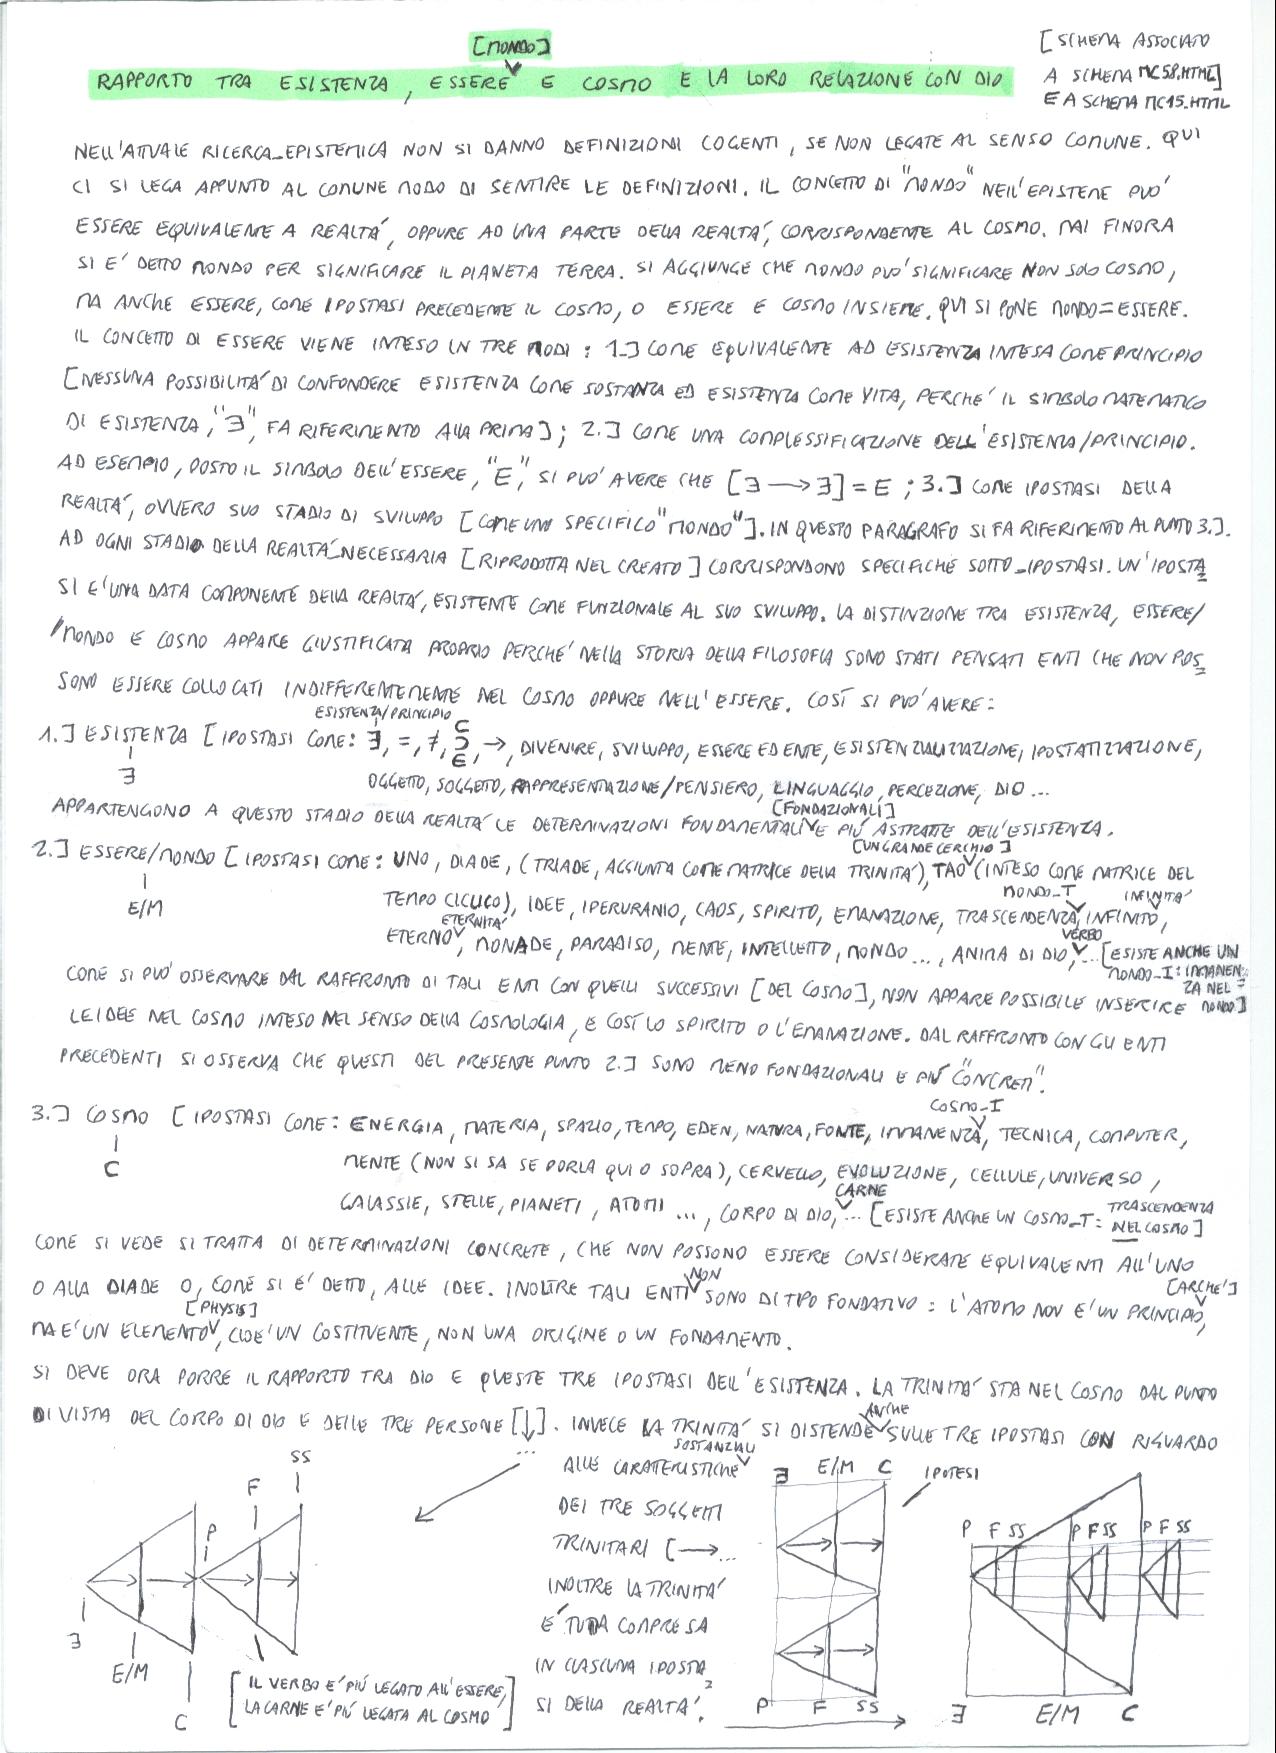 [MONDO]
RAPPORTO TRA ESISTENZA, ESSERE E COSMO E LA LORO RELAZIONE CON DIO
[SCHEMA ASSOCIATO
A SCHEMA MC58.HTML]
E A SCHEMA MC15.HTML
NELL'ATTUALE RICERCA_EPISTEMICA NON SI DANNO DEFINIZIONI COGENTI, SE NON LEGATE AL SENSO COMUNE. QUI
CI SI LEGA APPUNTO AL COMUNE MODO DI SENTIRE LE DEFINIZIONI. IL CONCETTO DI "MONDO" NELL'EPISTEME PUO'
ESSERE EQUIVALENTE A REALTA', OPPURE AD UNA PARTE DELLA REALTA', CORRISPONDENTE AL COSMO. MAI FINORA
SI E' DETTO MONDO PER SIGNIFICARE IL PIANETA TERRA. SI AGGIUNGE CHE MONDO PUO' SIGNIFICARE NON SOLO COSMO,
MA ANCHE ESSERE, COME IPOSTASI PRECEDENTE IL COSMO, O ESSERE E COSMO INSIEME. QUI SI PONE MONDO=ESSERE.
IL CONCETTO DI ESSERE VIENE INTESO IN TRE MODI: 1.] COME EQUIVALENTE AD ESISTENZA INTESA COME PRINCIPIO
[NESSUNA POSSIBILITA' DI CONFONDERE ESISTENZA COME SOSTANZA ED ESISTENZA COME VITA, PERCHE' IL SIMBOLO MATEMATICO
DI ESISTENZA, "∃", FA RIFERIMENTO ALLA PRIMA]; 2.] COME UNA COMPLESSIFICAZIONE DELL'ESISTENZA/PRINCIPIO.
AD ESEMPIO, POSTO IL SIMBOLO DELL'ESSERE, "E", SI PUO' AVERE CHE [∃ → ∃] = E ; 3.] COME IPOSTASI DELLA
REALTA', OVVERO SUO STADIO DI SVILUPPO [COME UNO SPECIFICO "MONDO"]. IN QUESTO PARAGRAFO SI FA RIFERIMENTO AL PUNTO 3.].
AD OGNI STADIO DELLA REALTA'_NECESSARIA [RIPRODOTTA NEL CREATO] CORRISPONDONO SPECIFICHE SOTTO_IPOSTASI. UN'IPOSTA=
SI E' UNA DATA COMPONENTE DELLA REALTA', ESISTENTE COME FUNZIONALE AL SUO SVILUPPO. LA DISTINZIONE TRA ESISTENZA, ESSERE/
/MONDO E COSMO APPARE GIUSTIFICATA PROPRIO PERCHE' NELLA STORIA DELLA FILOSOFIA SONO STATI PENSATI ENTI CHE NON POS=
SONO ESSERE COLLOCATI INDIFFERENTEMENTE NEL COSMO OPPURE NELL'ESSERE. COSÌ SI PUO' AVERE:
ESISTENZA/PRINCIPIO
1.] ESISTENZA [IPOSTASI COME: ∃, =, ≠, ⊃, →, DIVENIRE, SVILUPPO, ESSERE ED ENTE, ESISTENZIALIZZAZIONE, IPOSTATIZZAZIONE,
∃
OGGETTO, SOGGETTO, RAPPRESENTAZIONE/PENSIERO, LINGUAGGIO, PERCEZIONE, DIO ...
[FONDAZIONALI]
APPARTENGONO A QUESTO STADIO DELLA REALTA' LE DETERMINAZIONI FONDAMENTALI E PIU' ASTRATTE DELL'ESISTENZA.
[UN GRANDE CERCHIO]
2.] ESSERE/MONDO [IPOSTASI COME: UNO, DIADE, (TRIADE, AGGIUNTA COME MATRICE DELLA TRINITA'), TAO (INTESO COME MATRICE DEL
E/M
MONDO_T INFINITA'
TEMPO CICLICO), IDEE, IPERURANIO, CAOS, SPIRITO, EMANAZIONE, TRASCENDENZA, INFINITO,
ETERNITA' VERBO
ETERNO, MONADE, PARADISO, MENTE, INTELLETTO, MONDO ..., ANIMA DI DIO, ... [ESISTE ANCHE UN
MONDO_I: IMMANEN=
ZA NEL
MONDO]
COME SI PUO' OSSERVARE DAL RAFFRONTO DI TALI ENTI CON QUELLI SUCCESSIVI [DEL COSMO], NON APPARE POSSIBILE INSERIRE
LE IDEE NEL COSMO INTESO NEL SENSO DELLA COSMOLOGIA, E COSÌ LO SPIRITO O L'EMANAZIONE. DAL RAFFRONTO CON GLI ENTI
PRECEDENTI SI OSSERVA CHE QUESTI DEL PRESENTE PUNTO 2.] SONO MENO FONDAZIONALI E PIU' "CONCRETI".
COSMO_I
3.] COSMO [IPOSTASI COME: ENERGIA, MATERIA, SPAZIO, TEMPO, EDEN, NATURA, FONTE, IMMANENZA, TECNICA, COMPUTER,
C
MENTE (NON SI SA SE PORLA QUI O SOPRA), CERVELLO, EVOLUZIONE, CELLULE, UNIVERSO,
CARNE
GALASSIE, STELLE, PIANETI, ATOMI ..., CORPO DI DIO, ... [ESISTE ANCHE UN COSMO_T: TRASCENDENZA
NEL COSMO]
COME SI VEDE SI TRATTA DI DETERMINAZIONI CONCRETE, CHE NON POSSONO ESSERE CONSIDERATE EQUIVALENTI ALL'UNO
NON
O ALLA DIADE O, COME SI E' DETTO, ALLE IDEE. INOLTRE TALI ENTI SONO DI TIPO FONDATIVO: L'ATOMO NON E' UN PRINCIPIO,
[ARCHE']
[PHYSIS]
MA E' UN ELEMENTO, CIOE' UN COSTITUENTE, NON UNA ORIGINE O UN FONDAMENTO.
SI DEVE ORA PORRE IL RAPPORTO TRA DIO E QUESTE TRE IPOSTASI DELL'ESISTENZA. LA TRINITA' STA NEL COSMO DAL PUNTO
DI VISTA DEL CORPO DI DIO E DELLE TRE PERSONE [↓]. INVECE LA TRINITA' SI DISTENDE SULLE TRE IPOSTASI CON RIGUARDO
ANCHE
...
SOSTANZIALI
ALLE CARATTERISTICHE
DEI TRE SOGGETTI
TRINITARI [→...
INOLTRE LA TRINITA'
E' TUTTA COMPRESA
IN CIASCUNA IPOSTA=
SI DELLA REALTA'.
SS
F
P
∃
E/M
C
[IL VERBO E' PIU' LEGATO ALL'ESSERE,
LA CARNE E' PIU' LEGATA AL COSMO]
∃ E/M C
IPOTESI
P F SS
P F SS P F SS P F SS
∃ E/M C